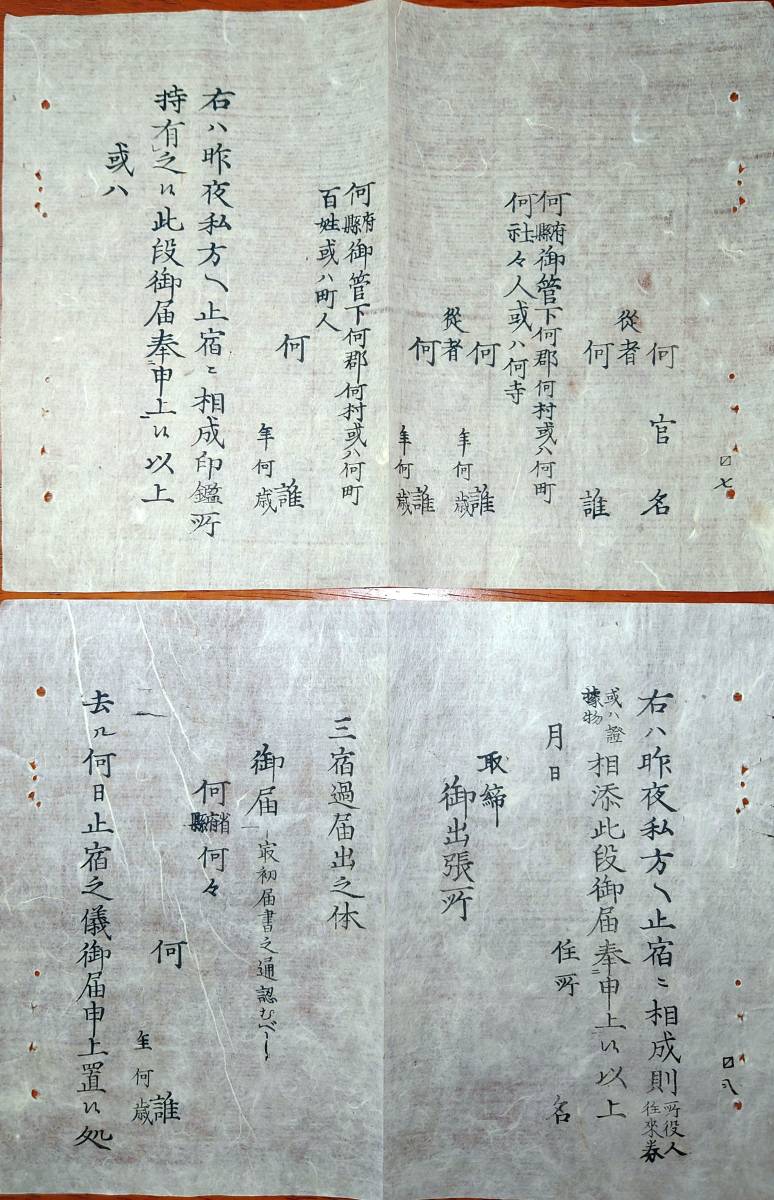 〼七
何官名
從者
何誰
何府縣御管下何郡何村或ハ何町
何社々人或ハ何寺
何誰
年何歳
從者
何誰
年何歳
何府縣御管下何郡何村或ハ何町
百姓或ハ町人
何誰
年何歳
右ハ昨夜私方へ止宿ニ相成印鑑所
持有之候此段御届奉申上候以上
或ハ
〼八
右ハ昨夜私方へ止宿ニ相成則所役人往来券
或ハ證據物相添此段御届奉申上候以上
月日
住所
名
取締
御出張所
三宿過届出之体
御届
最初届書之通認むべし
何省府縣何々
何誰
年何歳
一
去ル何日止宿之儀御届申上置候処